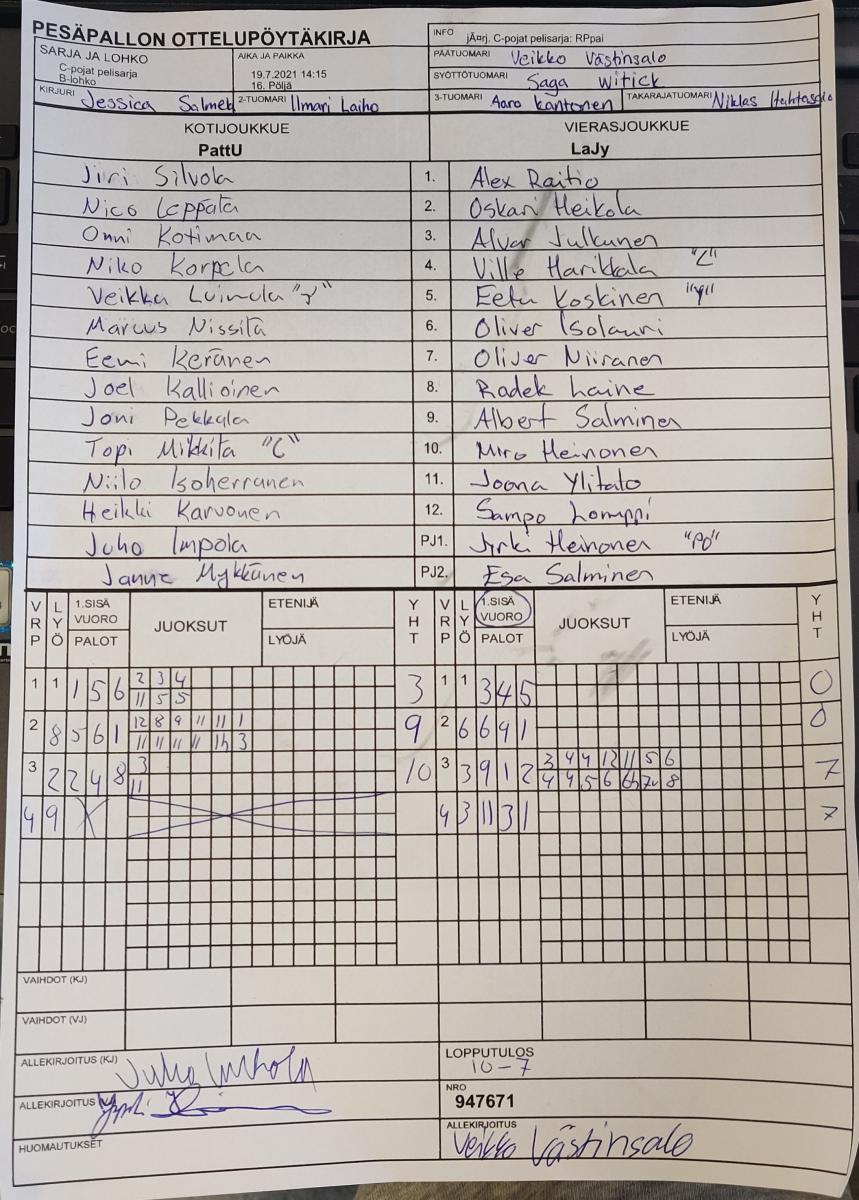 PESÄPALLON OTTELUPÖYTÄKIRJA
INFO jÄ¤rj. C-pojat pelisarja: RPpai
SARJA JA LOHKO
C-pojat pelisarja
B-lohko
AIKA JA PAIKKA
19.7.2021 14:15
16. Pöljä
PÄÄTUOMARI Veikko Västinsalo
SYÖTTÖTUOMARI Saga Witick
KIRJURI Jessica
2-TUOMARI Ilmari Laiho
3-TUOMARI Aaro Kantonen
TAKARAJATUOMARI Niklas
KOTIJOUKKUE
PattU
VIERASJOUKKUE
LaJy
Jiri Silvola 1. Alex Raitio
Nico Leppälä 2. Oskari Heikola
Onni Kotimaa 3. Alvar Julkunen
Niko Korpela 4. Ville Harikkala "C"
Veikka Luimula 5. Eetu Koskinen "Y"
Marcus Nissilä 6. Oliver Isolauri
Eemi Keränen 7. Oliver Niiranen
Joel Kallioinen 8. Radek Laine
Joni Pekkala 9. Albert Salminen
Topi Mikkilä "C" 10. Miro Heinonen
Niilo Isoherranen 11. Joona Ylitalo
Heikki Karvonen 12. Sampo Lomppi
Juho Impola PJ1. Jyrki Heinonen "PO"
Janne Mykkänen PJ2. Esa Salminen
VRP LYÖ 1.SISÄ VUORO PALOT JUOKSUT ETENIJÄ LYÖJÄ YHT VRP LYÖ 1.SISÄ VUORO PALOT JUOKSUT ETENIJÄ LYÖJÄ YHT
1 1 1 5 6 2 3 4 3 1 1 3 4 5 0
11 5 5
2 8 5 6 1 12 8 9 11 11 1 9 2 6 6 9 1 0
11 11 11 11 3
3 2 2 4 8 3 10 3 3 9 1 2 3 4 4 12 11 5 6 7
11 4 4 5 6 8
4 9 X 4 3 11 3 1 7
VAIHDOT (KJ)
VAIHDOT (VJ)
ALLEKIRJOITUS (KJ)
LOPPUTULOS
10-7
ALLEKIRJOITUS
NRO
947671
HUOMAUTUKSET
ALLEKIRJOITUS
Veikko Västinsalo